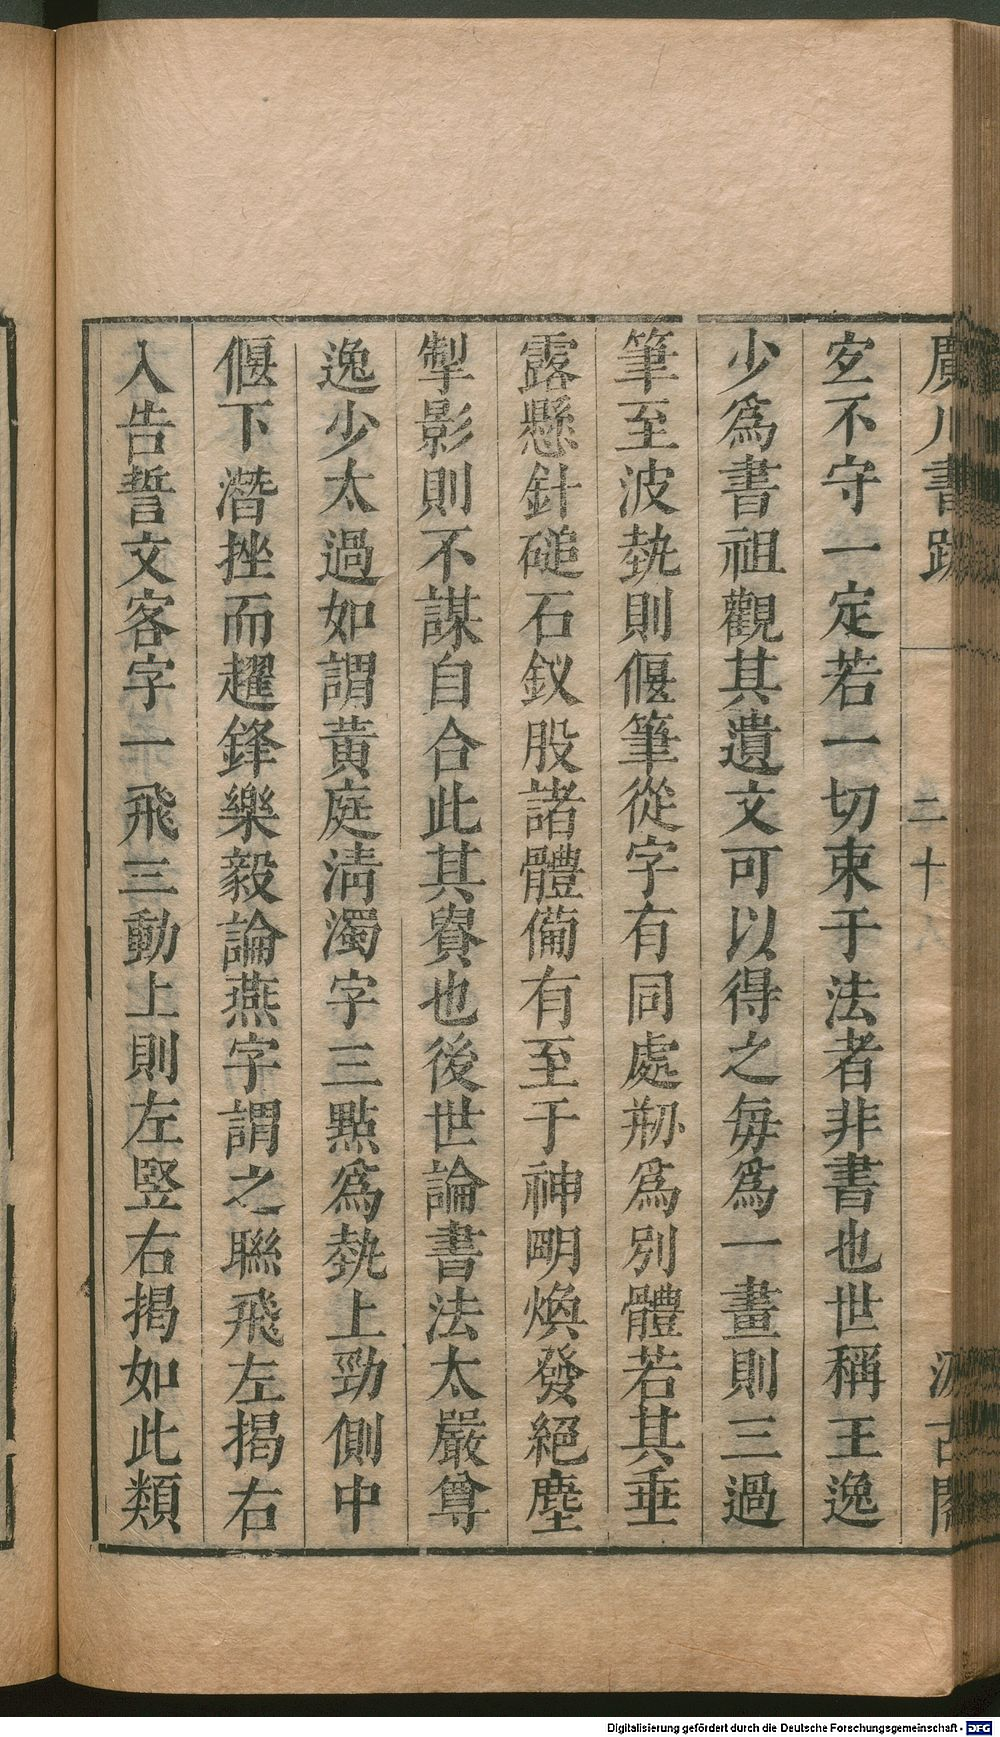 廣川書跋 二十 汲古閣
㝎不守一定若一切束于法者非書也世稱王逸
少爲書祖觀其遺文可以得之每爲一畫則三過
筆至波𫝑則偃筆從字有同處剏爲別體若其垂
露懸針磓石釵股諸體俻有至于神明煥發絕塵
掣影則不謀自合此其賔也後世論書法太嚴尊
逸少太過如謂黃庭淸濁字三點爲𫝑上勁側中
偃下潛挫而趯鋒樂毅論燕字謂之聯飛左揭右
入告誓文客字一飛三動上則左竪右揭如此類
Digitalisierung gefördert durch die Deutsche Forschungsgemeinschaft - DFG